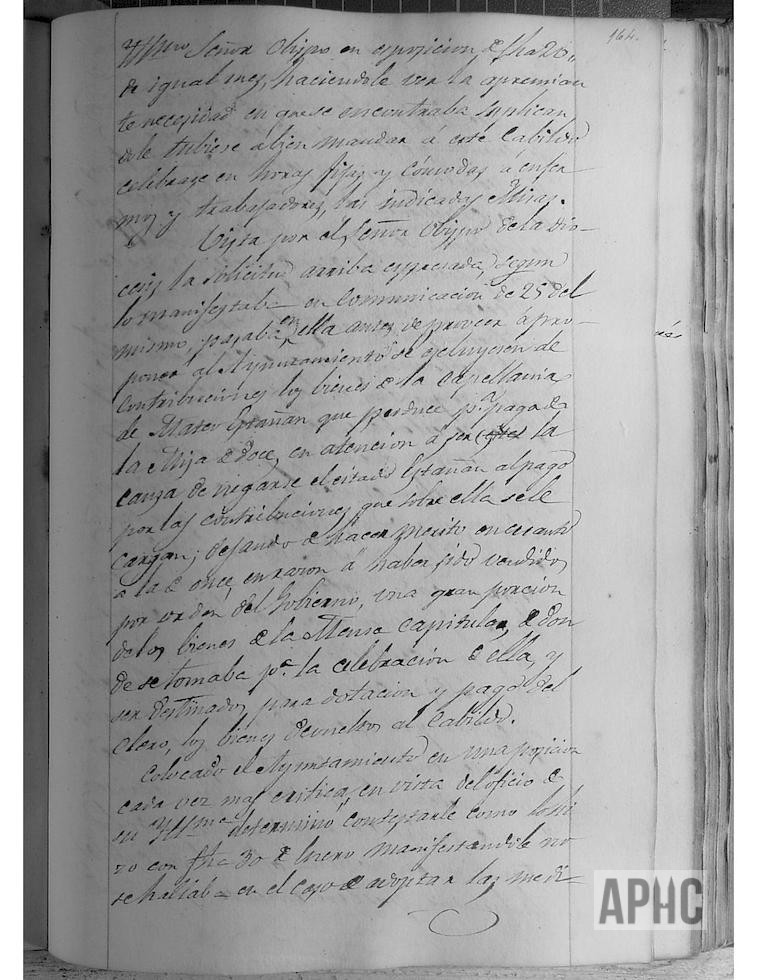 164.
Yllmo Señor Obispo en esposicion de fha 20,,
de igual mes, haciendole ver la apremian
te necesidad en que se encontraba suplican
dole tubiese abien mandar á este Cabildo
celebrase en horas fijas y cómodas á enfer
mos y trabajadores, las indicadas Misas.
Vista por el Señor Obispo de la Dio-
cesis la solicitud arriba espresada, segun
lo manifestaba en Comunicacion de 25 del
mismo, pasaba en ella antes de proveer á pro-
poner al Ayuntamiento se escluyesen de
Contribuciones los bienes de la Capellania
de Mateo Estañan que produce pa. pago de
la Misa de doce, en atencion á ser la
causa de negarse el citado Estañan al pago
por las contribuciones que sobre ella se le
Cargan; dejando de hacer merito en cuanto
a la de once, en razon á haber sido vendidos
por orden del Gobierno, una gran porcion
de los bienes de la Mensa Capitular, de don
de se tomaba pa. la celebracion de ella, y
ser destinados para dotacion y pago del
Clero, los bienes devueltos al Cabildo.
Colocado el Ayuntamiento en una posicion
cada vez mas critica, en vista del oficio de
su Yllma determinó contestarle como lo hi
zo con fha 30 de Enero manifestandole no
se hallaba en el caso de adoptar las medi-
APHC